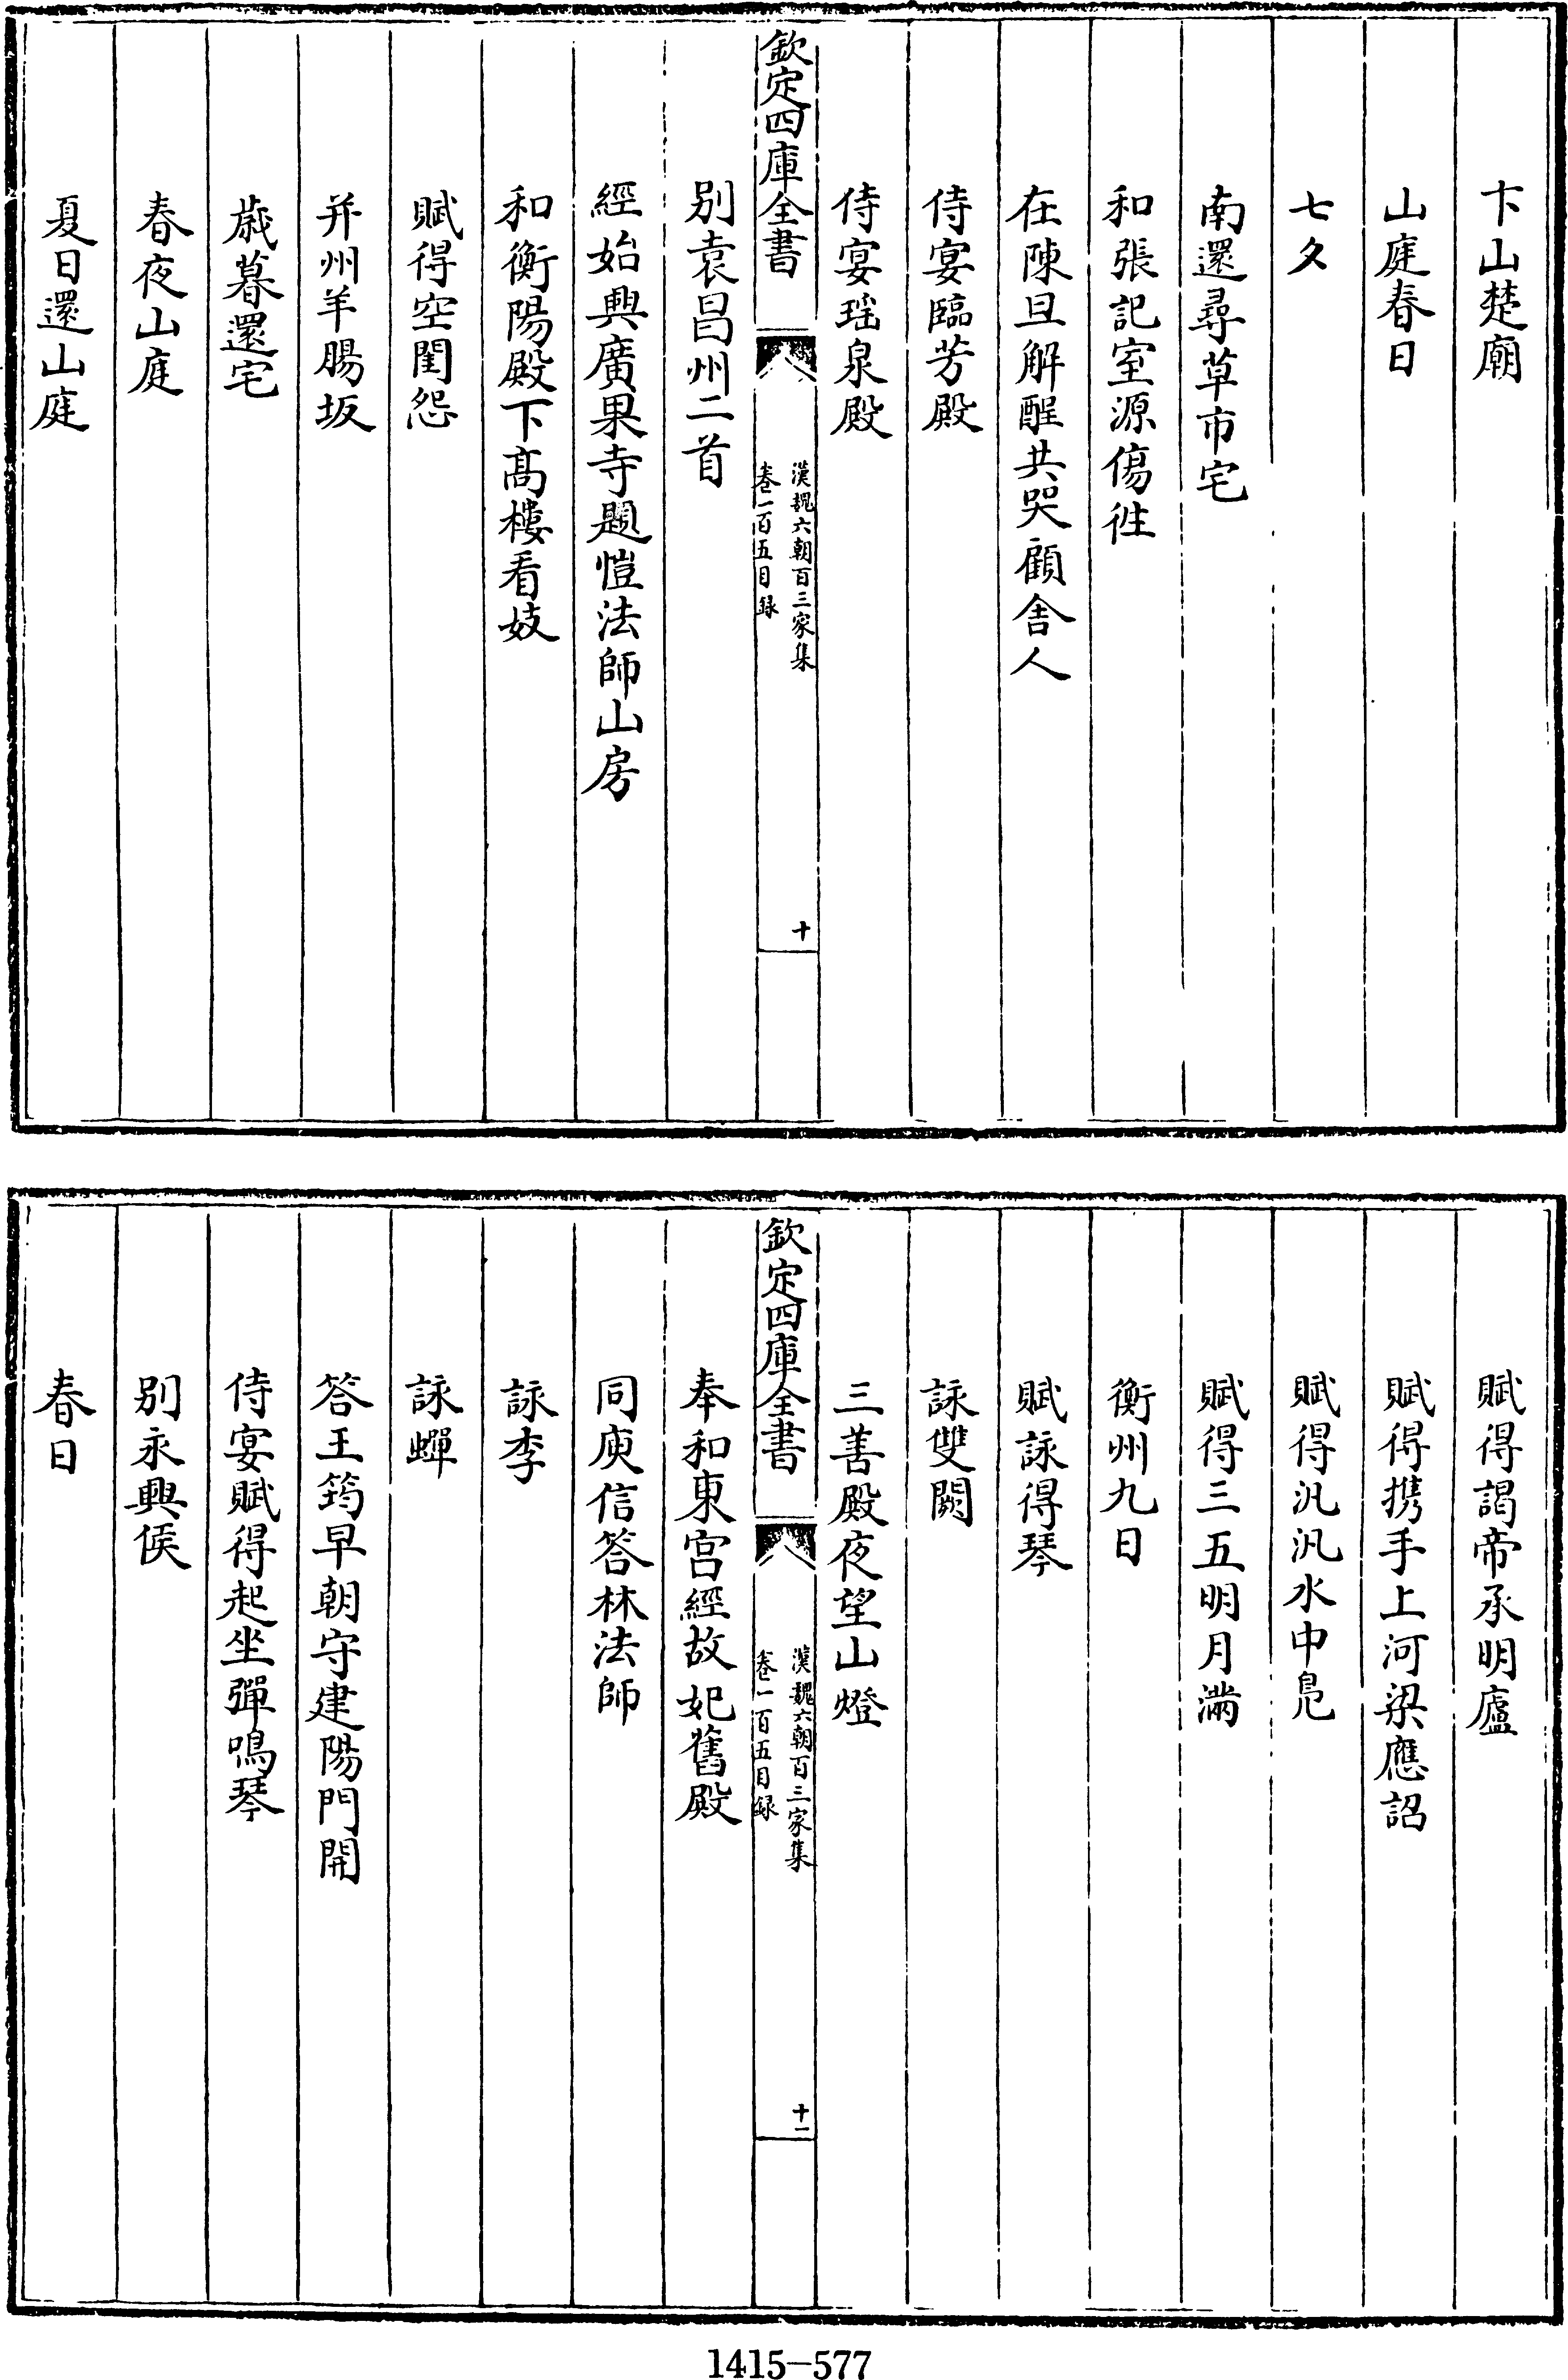 卞山楚廟
山庭春日
七夕
南還尋草市宅
和張記室源傷往
在陳旦解酲共哭顧舎人
侍宴臨芳殿
侍宴瑶泉殿
欽定四庫全書
漢魏六朝百三家集
卷一百五目録
十
别袁昌州二首
經始興廣果寺題愷法師山房
和衡陽殿下髙樓看妓
賦得空閨怨
并州羊腸坂
歳暮還宅
春夜山庭
夏日還山庭
賦得謁帝承明廬
賦得携手上河梁應詔
賦得汎汎水中鳬
賦得三五明月滿
衡州九日
賦詠得琴
詠雙闕
三善殿夜望山燈
欽定四庫全書
漢魏六朝百三家集
卷一百五目録
十一
奉和東宫經故妃舊殿
同庾信答林法師
詠李
詠蟬
答王筠早朝守建陽門開
侍宴賦得起坐彈鳴琴
别永興侯
春日
1415-577